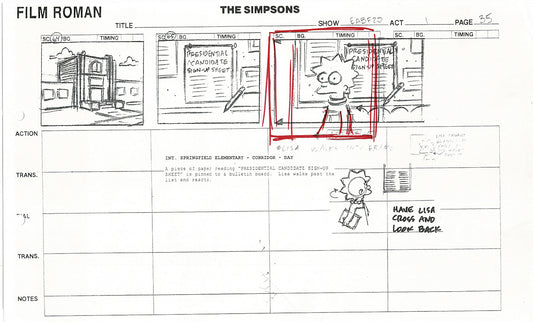 FILM ROMAN
THE SIMPSONS
TITLE
SHOW EABF20 ACT 1 PAGE 35
SC. BG. TIMING
SC. BG. TIMING
SC. BG. TIMING
SC. BG. TIMING
PRESIDENTIAL
CANDIDATE
SIGN-UP SHEET
PRESIDENTIAL
CANDIDATE
SIGN-UP
SHEET
LISA WALKS INTO FRAME
ACTION
INT. SPRINGFIELD ELEMENTARY - CORRIDOR - DAY
A piece of paper reading "PRESIDENTIAL CANDIDATE SIGN-UP
SHEET" is pinned to a bulletin board. Lisa walks past the
list and reacts.
TRANS.
HAVE LISA
CROSS AND
LOOK BACK
TRANS.
NOTES